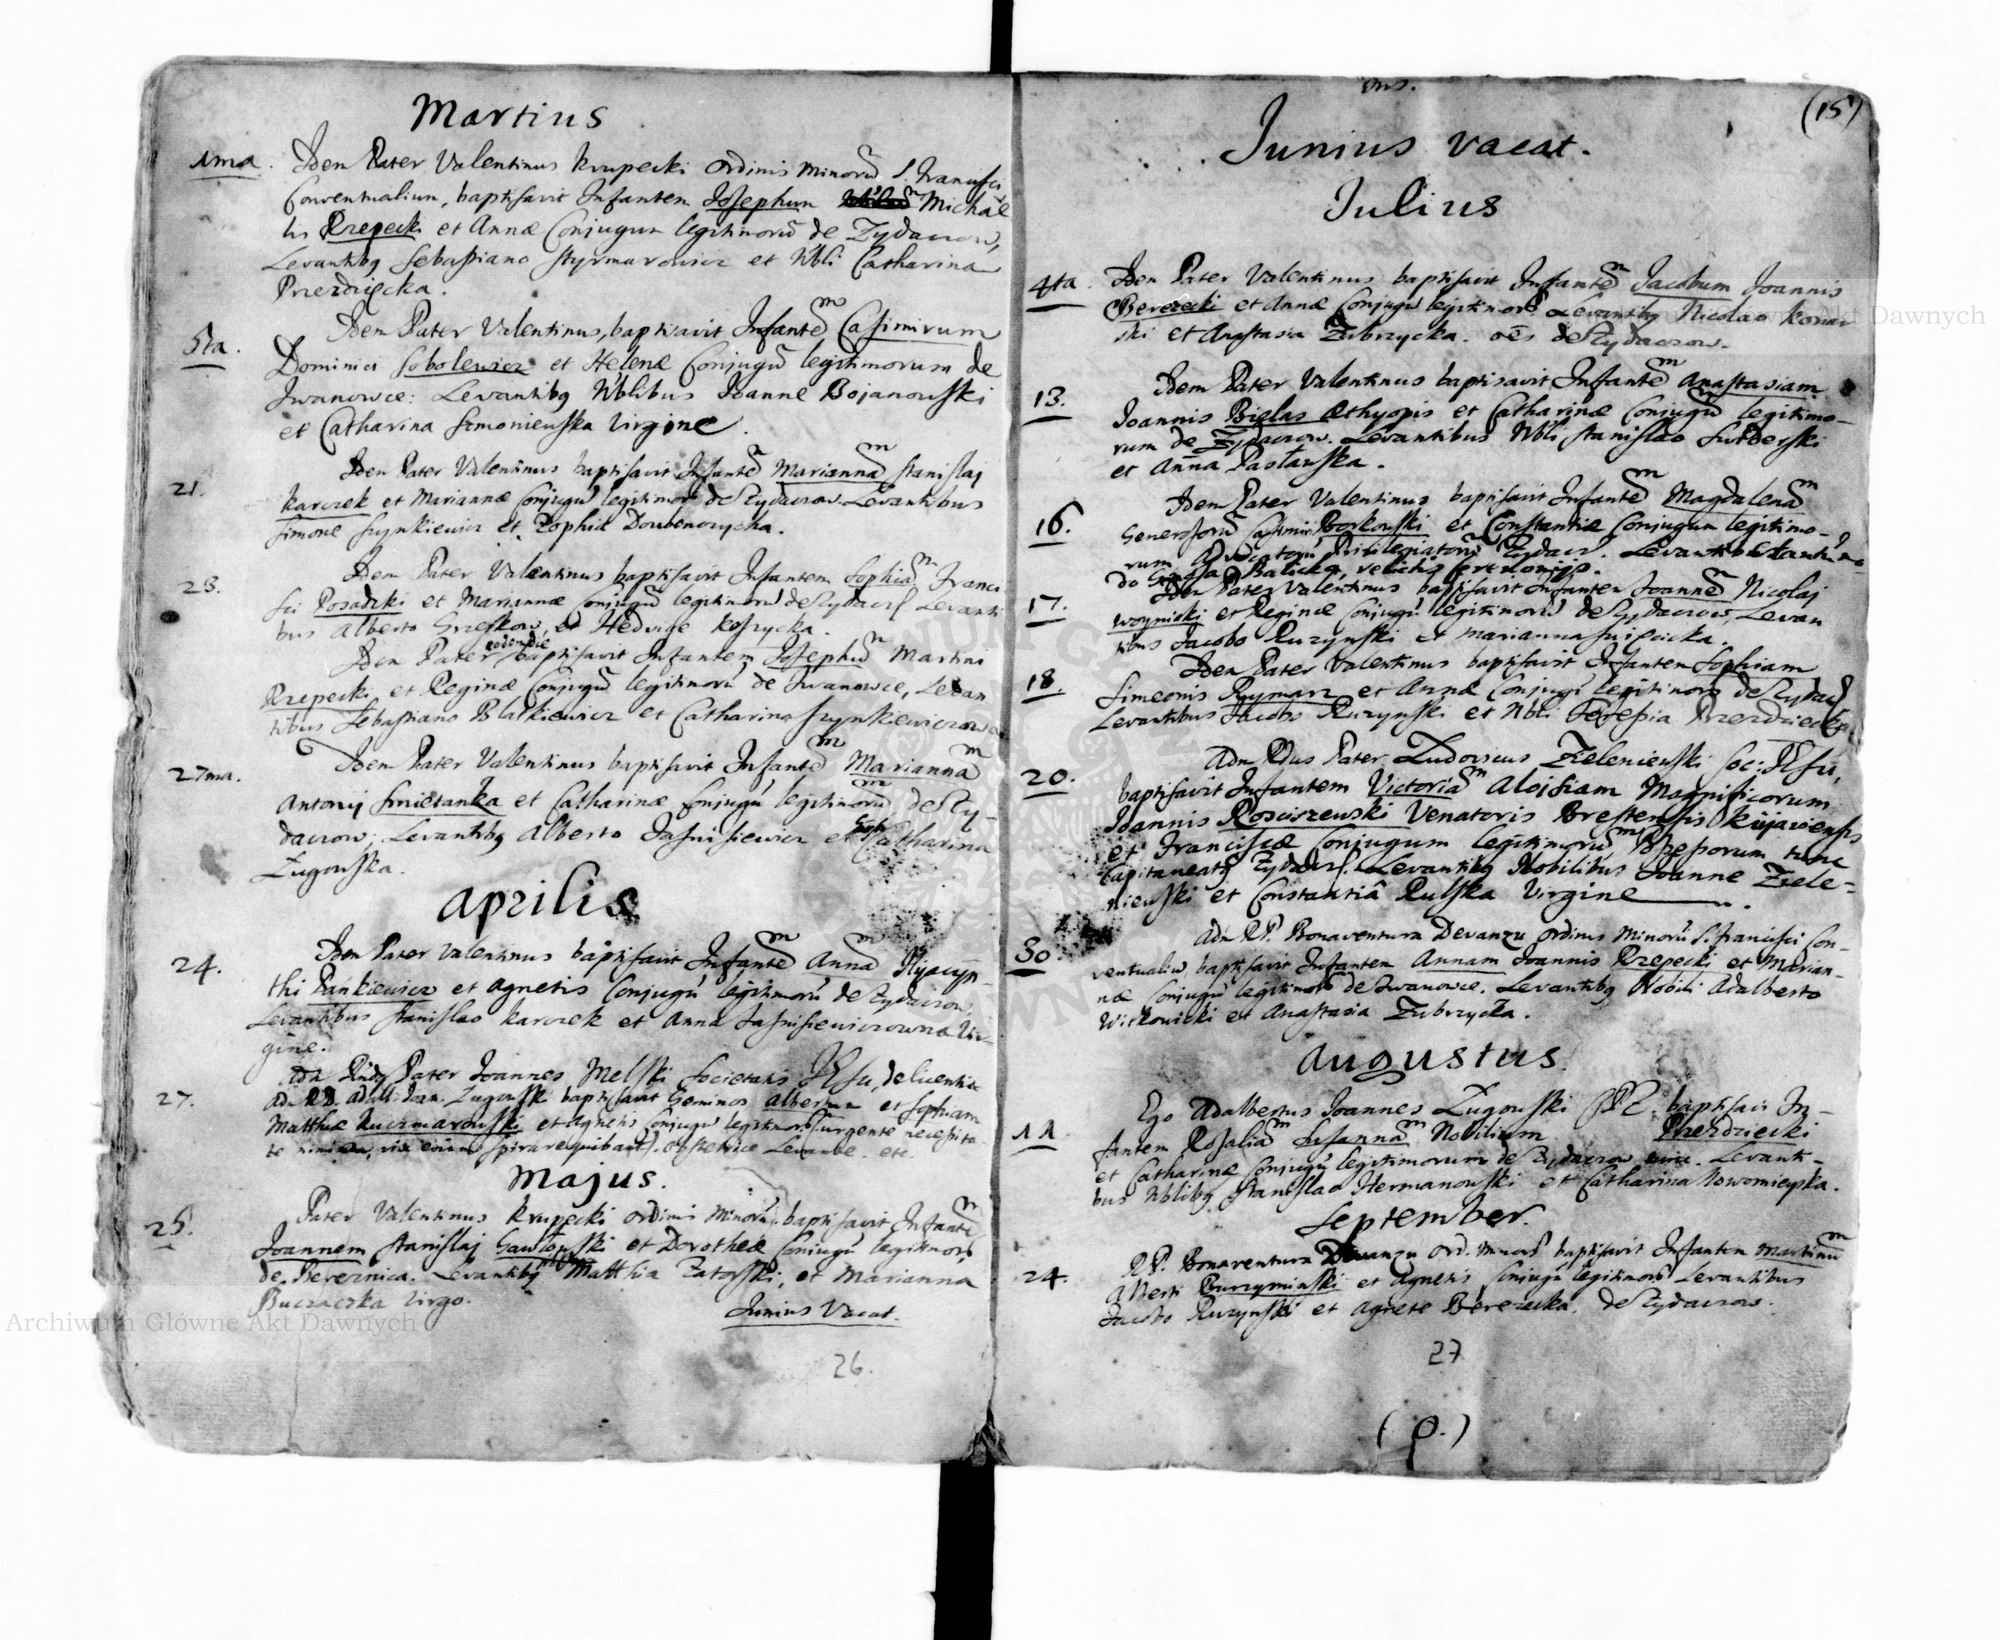 Martius
1ma. Idem Pater Valentinus Krupecki Ordinis Minorũ S. Francisci
Conventualium, baptisavit Infantem Josephum Michaë
lis Rzepecki et Annæ Conjugum legitimorũ de Zydaczow,
Levantibq Sebastiano Styrmarowicz et Nbli Catharina
Przezdziecka.
5ta. Idem Pater Valentinus, baptisavit Infantẽm Casimirum
Dominici Sobolewicz et Helenæ Conjugũ legitimorum de
Iwanowce: Levantibq Nblibus Joanne Bojanowski
et Catharina Szmoniewska Virgine.
21. Idem Pater Valentinus baptisavit Infantẽm Mariannãm Stanislaj
Karczek et Mariannæ Conjugũ legitimorũ de Zydaczow. Levantibus
Simone Szynkiewicz et Zophia
23. Idem Pater Valentinus baptisavit Infantem Sophiãm Franci
sci Posadzki et Mariannæ Conjugũ legitimorũ de Zydacz. Levanti
bus Alberto et Hedvige
eodem die
Idem Pater baptisavit Infantem Josephũm Martini
Rzepecki, et Reginæ Conjugũ legitimorũ de Iwanowce, Levan
tibus Sebastiano Blatkiewicz et Catharina Szynkiewiczowa
27ma. Idem Pater Valentinus baptisavit Infantẽm Mariannãm
Antonij Smietanka et Catharinæ Conjugũ legitimorũm de Zy-
daczow, Levantibq Alberto Jasnisiewicz et Catharina
Zugowska.
Aprilis
24. Idem Pater Valentinus baptisavit Infantẽm Annãm Hyacyn-
thi Pankiewicz et Agnetis Conjugũ legitimorũ de Zydaczow,
Levantibus Stanislao Karczek et Anna Jasnisiewiczowna Vir-
gine.
27. Adm Rndq Pater Joannes Melski Societatis JEsu, de licentia
Adm RD. Adalb: Joan. Zugowski baptisavit Geminos Albertum et Sophiam
Matthiæ Kuczmarowski et Agnetis Conjugũ legitimorũ urgente necessita-
te nimirum, vix enim Obstetrice Levante. etc.
Majus.
25. Pater Valentinus Krupecki Ordinis Minorũ, baptisavit Infantẽm
Joannem Stanislaj Gawlowski et Dorotheæ Conjugũ legitimorũ
de Bereznica. Levantibq Matthia Zatorski, et Marianna
Buczaczka Virgo.
Junius Vacat.
26.
(15)
Junius vacat.
Julius
4ta. Idem Pater Valentinus baptisavit Infantẽm Jacobum Joannis
Berezecki et Annæ Conjugũ legitimorũ. Levantibq Nicolao Konar
ski et Anastasia Zubrzycka. oẽs de Zydaczow.
13. Idem Pater Valentinus baptisavit Infantẽm Anastasiam
Joannis Bielas Æthyopis et Catharinæ Conjugũ legitimo-
rum de Zydaczow. Levantibus Nbli Stanislao Swiderski
et Anna Pastawska.
16. Idem Pater Valentinus baptisavit Infantẽm Magdalenãm
Generosorũ Casimiri Borkowski et Constantiæ Conjugum legitimo-
rum Advocatorũ Privilegiatorũ Zydacz.
17. Idem Pater Valentinus baptisavit Infantem Joannẽm Nicolaj
Woynicki et Reginæ Conjugũ legitimorũ de Zydaczow, Levan
tibus Jacobo Ruzynski et Marianna
18. Idem Pater Valentinus baptisavit Infantem Sophiam
Simeonis Rymarz et Annæ Conjugũ legitimorũ de Zydacz
Levantibus Jacobo Ruzynski et Nbli Teresia Przezdziecka
20. Adm Rdus Pater Ludovicus Zieleniewski Soc: JEsu,
baptisavit Infantem Victoriãm Aloisiam Magnificorum
Joannis Rosciszewski Venatoris Brestensis Kujaviensis
et Franciscæ Conjugum legitimorũm Possessorum tunc
Capitaneatq Zydacz. Levantibq Nobilibus Joanne Ziele-
niewski et Constantiâ Rulska Virgine
30. Adm RP. Bonaventura Devanzu Ordinis Minorũ S. Francisci Con-
ventualiũ, baptisavit Infantem Annam Joannis Rzepecki et Marian-
næ Conjugũ legitimorũ de Iwanowce. Levantibq Nobili Adalberto
Witkowicki et Anastasia Zubrzycka.
Augustus.
11. Ego Adalbertus Joannes Zugowski baptisavi In-
fantem Rosaliãm Susannãm Nobilium Przezdziecki
et Catharinæ Conjugũ legitimorum de Zydaczow Levanti-
bus Nblibq Stanislao Hermanowski et Catharina Nowomieyska.
September.
24. RP. Bonaventura Devanzu Ord. Minorũ baptisavit Infantem Martinũm
Alberti Burzyminski et Agnetis Conjugũ legitimorũ Levantibus
Jacobo Ruzynski et Agnete Berezecka. de Zydaczow.
27
Archiwum Główne Akt Dawnych